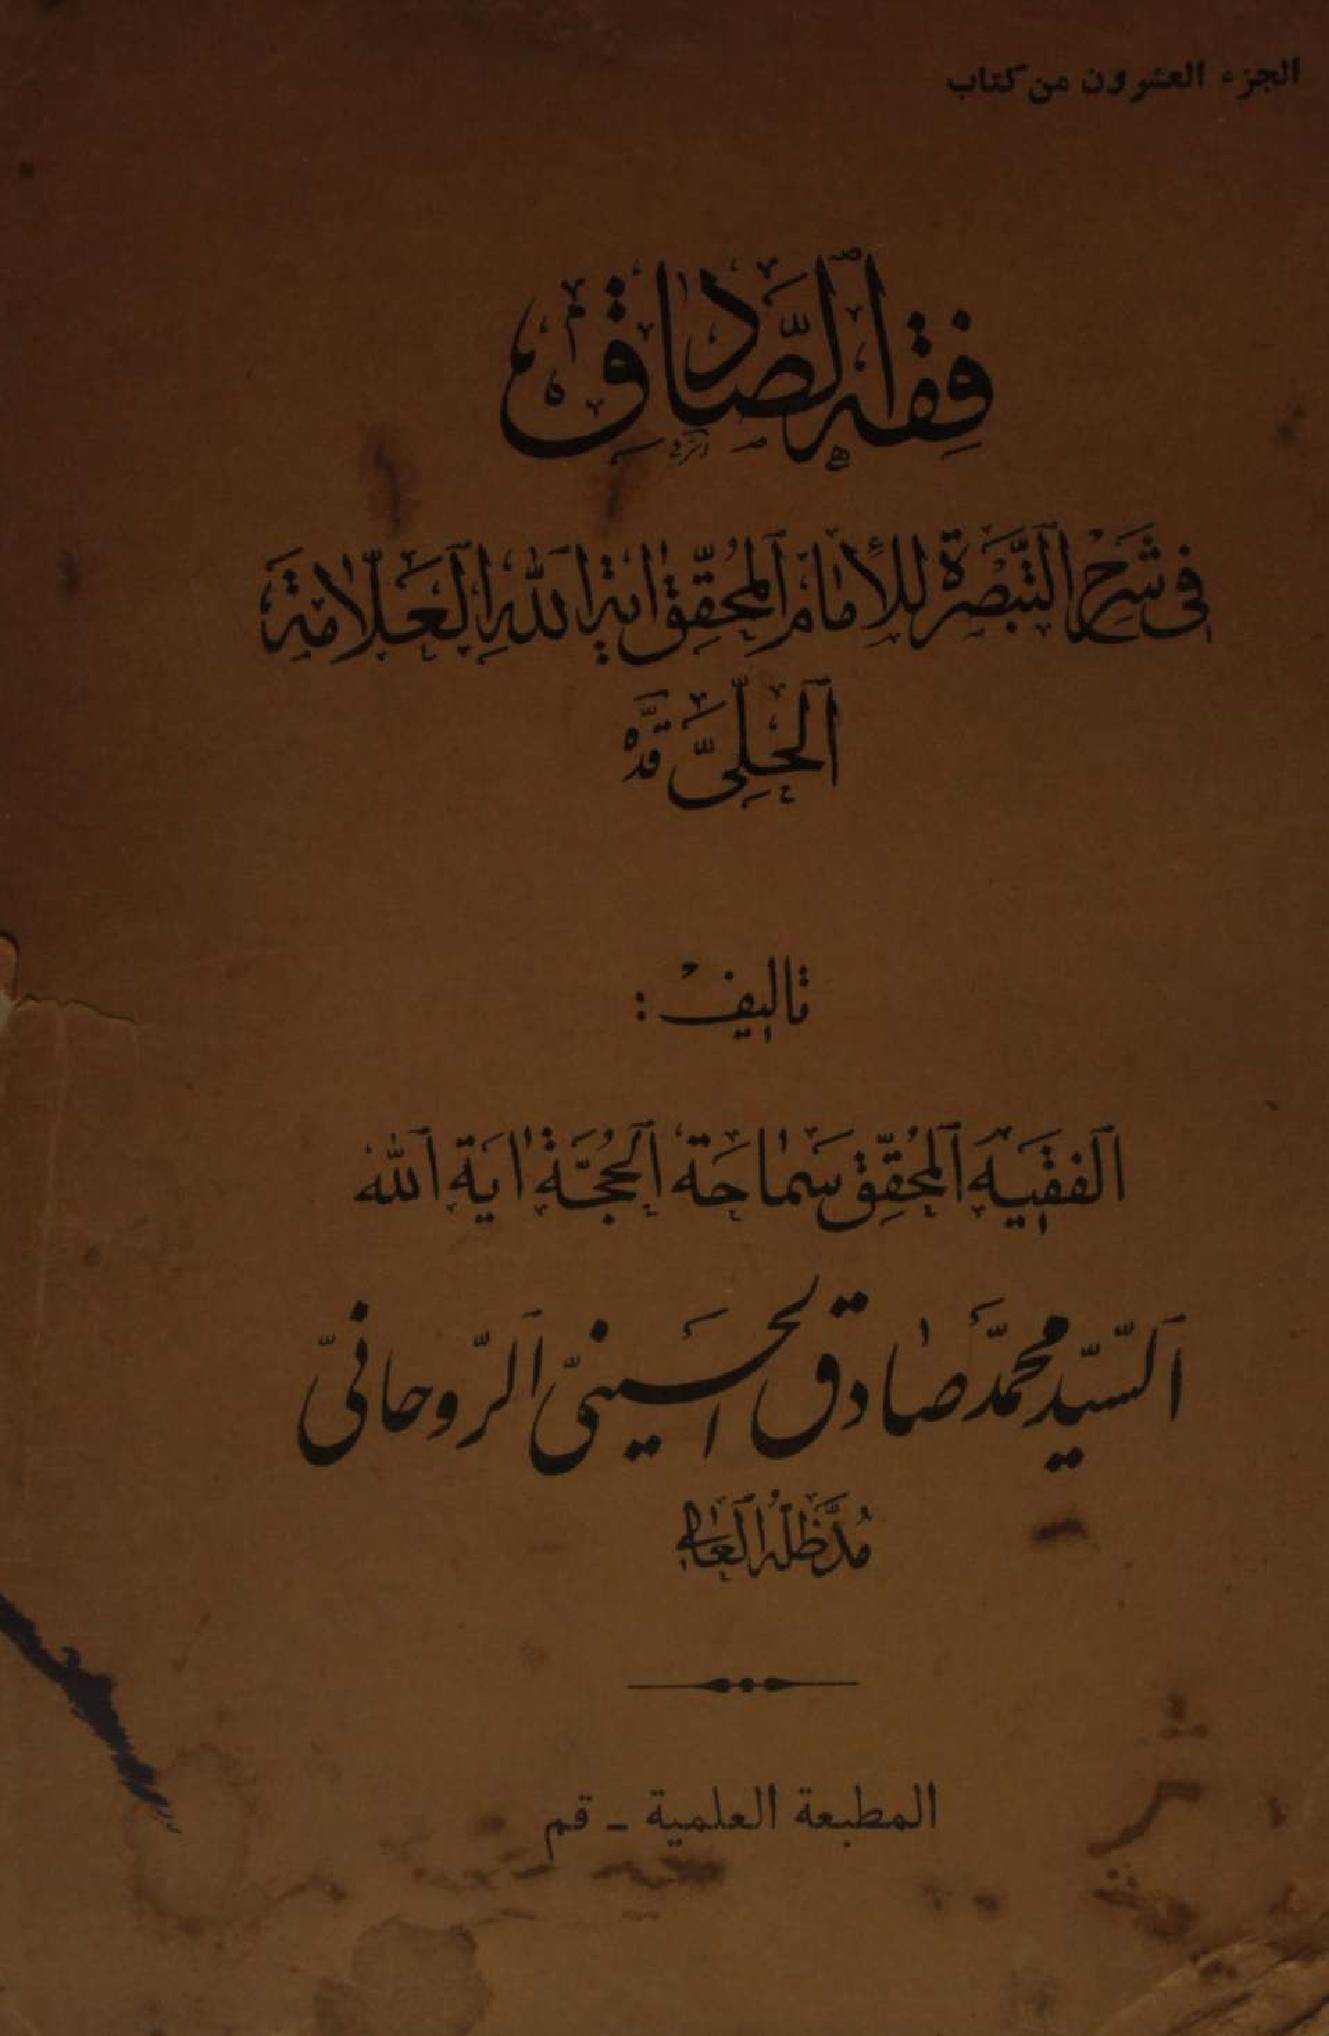 الجزء العشرون من كتاب
فِقهُ الصَّادِقِ
فى شَرحِ التَّبصَرةِ للإمامِ المُحقِّقِ ايةِ اللهِ العَلّامَة
الحِلِّىِّ قدّه
تاليف :
الفقيه المُحقِّق سَماحَة الحُجَّة اية الله
السّيّد محمّد صادق الحسينىّ الرّوحانىّ
مُدَّ ظِلُّهُ العالى
المطبعة العلمية - قم